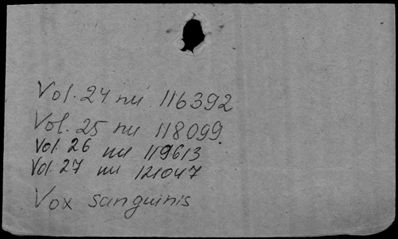 Vol. 24 nu 116392
Vol. 25 nu 118099
Vol. 26 nu 119613
Vol 27 nu 121047
Vox sanguinis